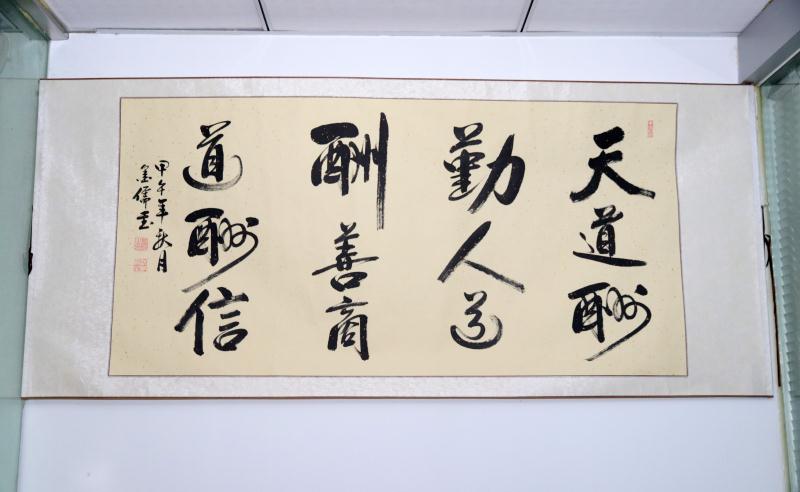 天道酬
勤人道
酬善商
道酬信
甲午年秋月
墨儒书